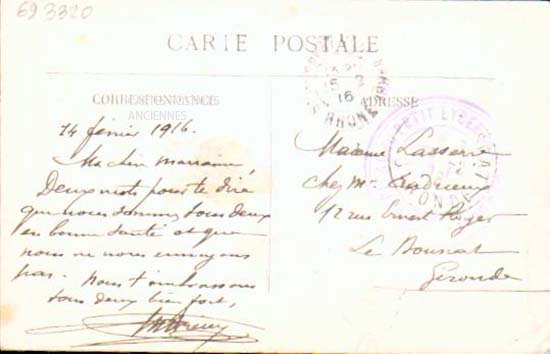 69 3320
CARTE POSTALE
CORRESPONDANCE
ANCIENNES
ADRESSE
15 2
16
RHONE
14 février 1916.
Ma chère marraine,
Deux mots pour te dire
que nous sommes tous deux
en bonne santé et que
nous ne nous ennuyons
pas. Nous t'embrassons
tous deux bien fort,
Madame Lasserre
chez Mr Andrieux
12 rue Ernest Royer
Le Bouscat
Gironde